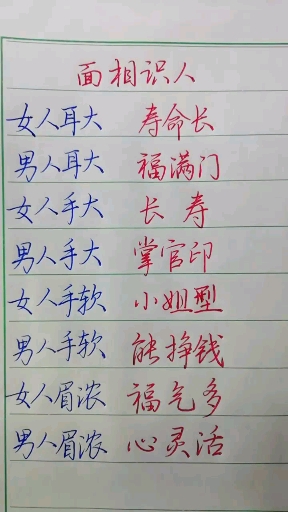 面相识人
女人耳大 寿命长
男人耳大 福满门
女人手大 长寿
男人手大 掌官印
女人手软 小姐型
男人手软 能挣钱
女人眉浓 福气多
男人眉浓 心灵活